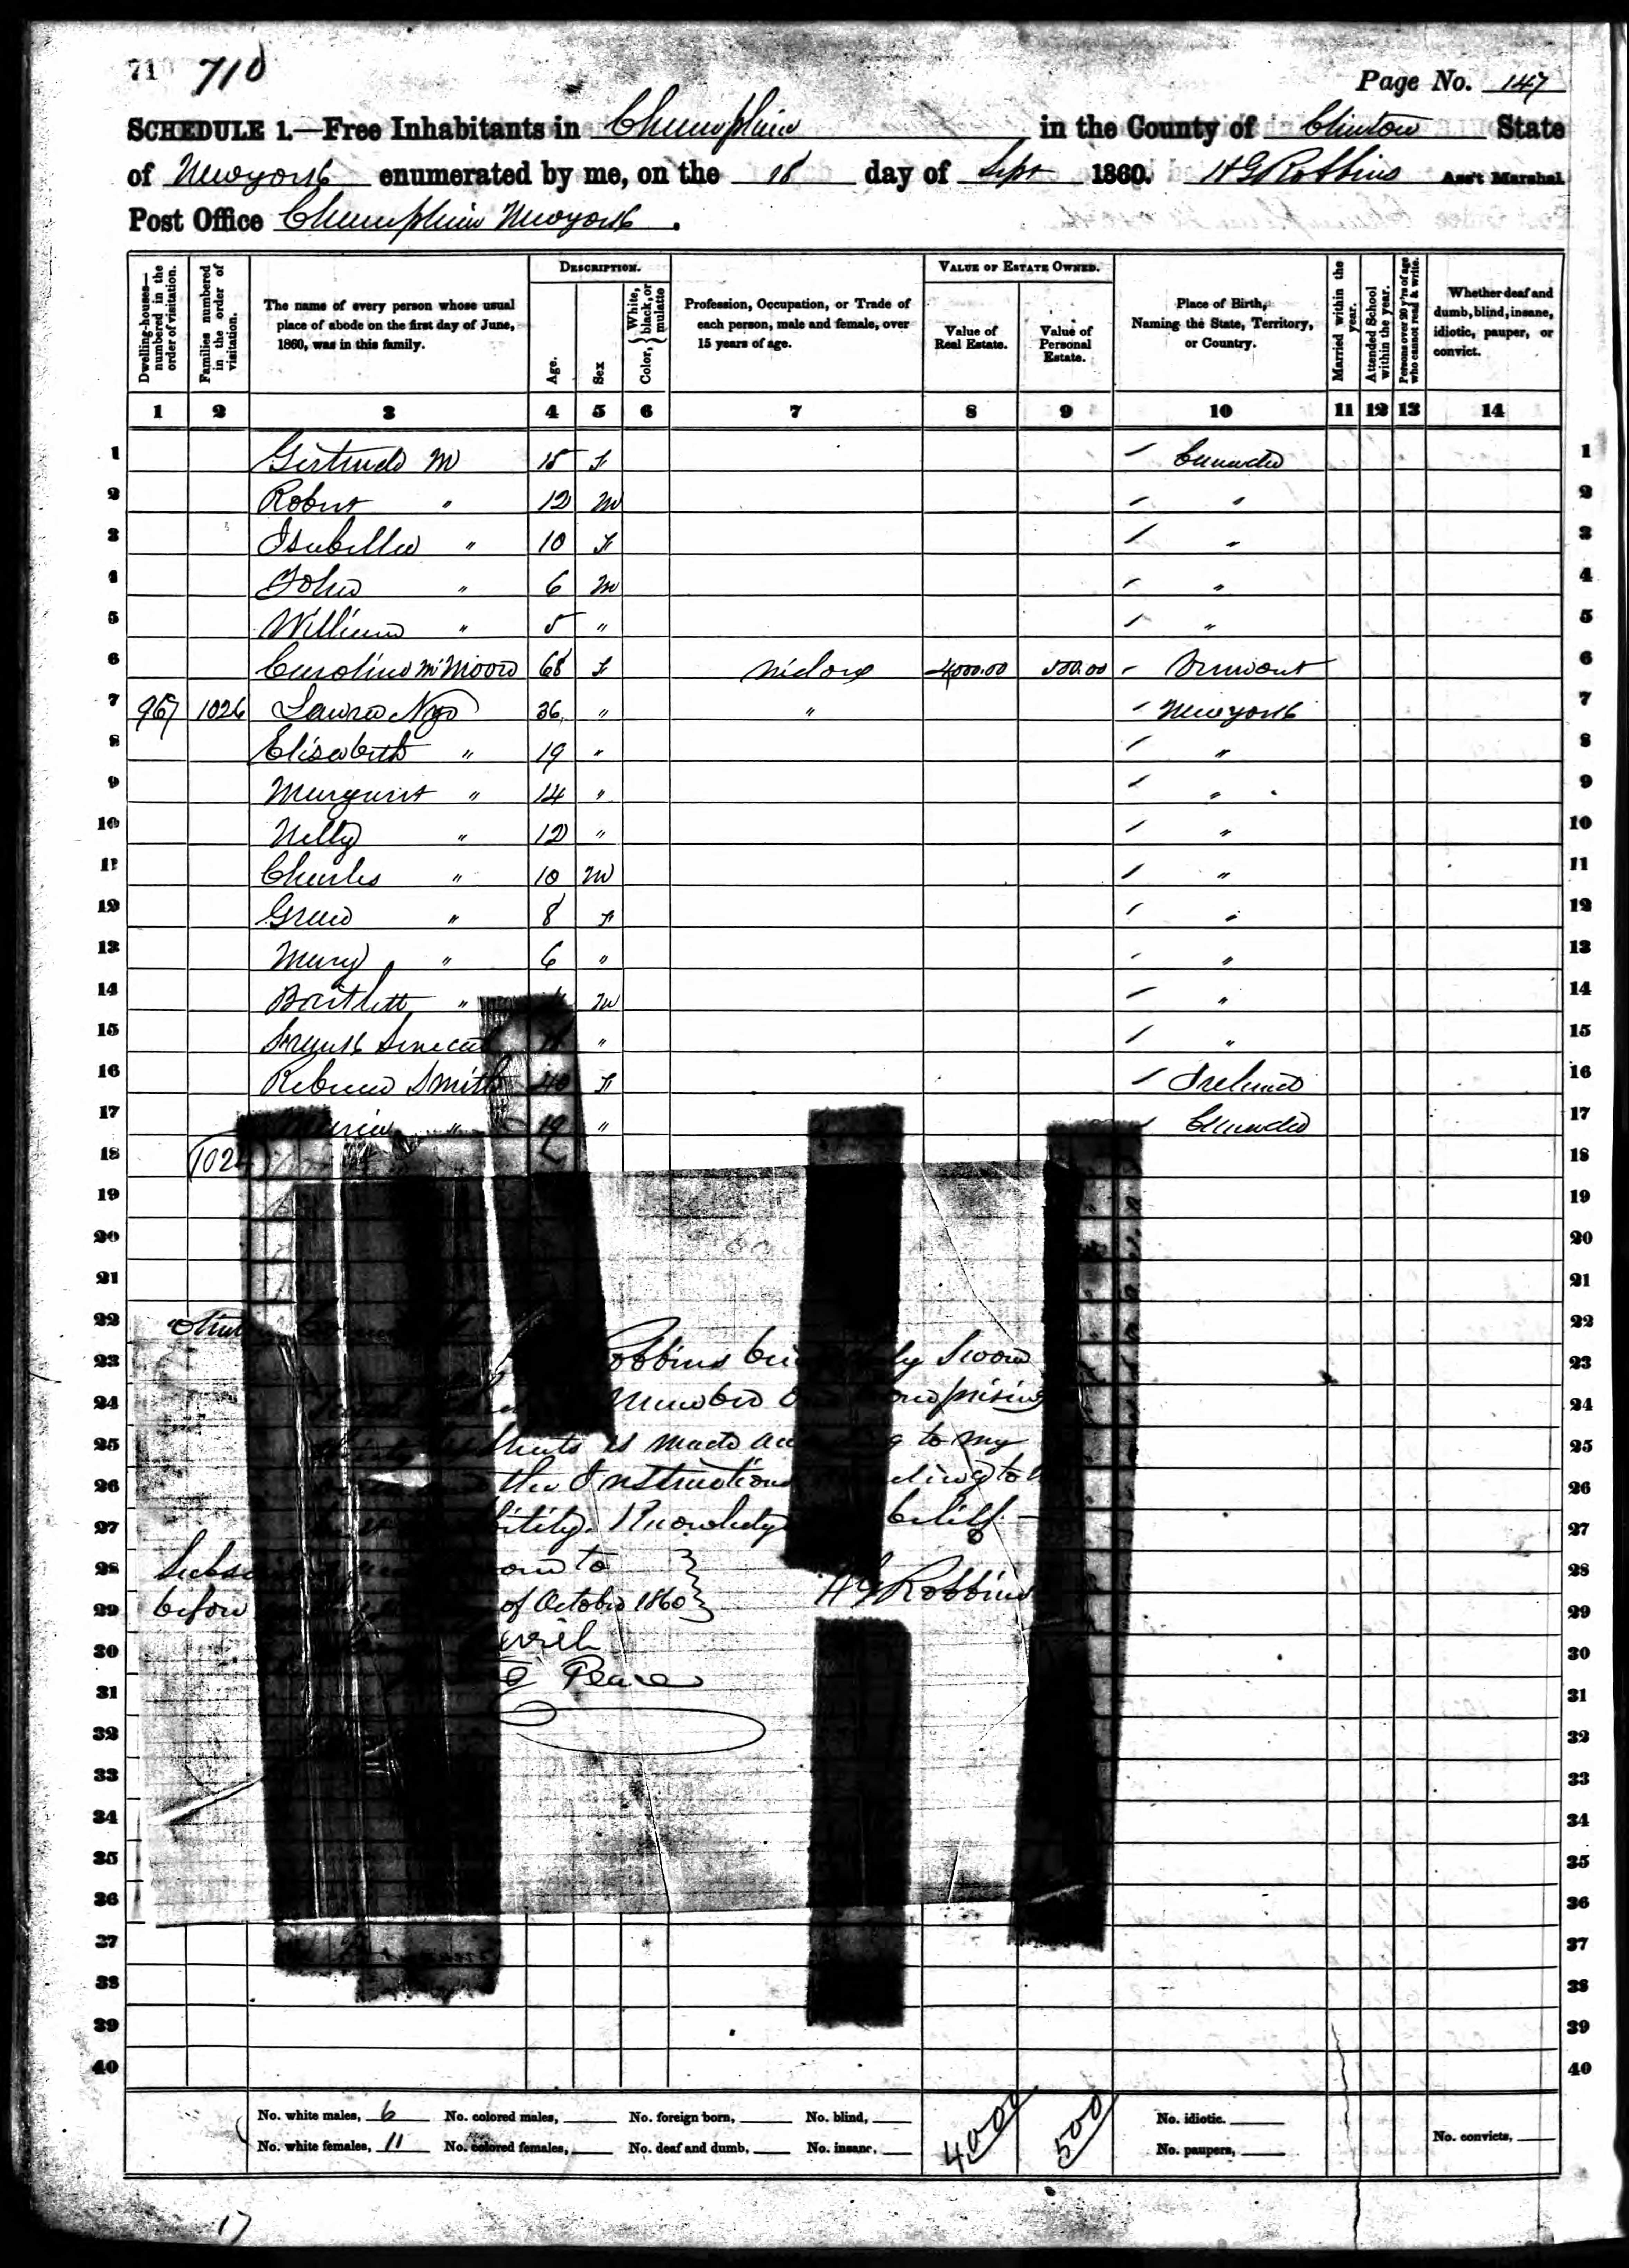 710 710
Page No. 147
SCHEDULE 1.—Free Inhabitants in Champlain in the County of Clinton State
of New york enumerated by me, on the 18 day of Sept 1860. H G Robbins Ass't Marshal
Post Office Champlain New york.
Dwelling-houses—numbered in the order of visitation.
Families numbered in the order of visitation.
The name of every person whose usual place of abode on the first day of June, 1860, was in this family.
DESCRIPTION.
Age.
Sex
Color, {White, black, or mulatto
Profession, Occupation, or Trade of each person, male and female, over 15 years of age.
VALUE OF ESTATE OWNED.
Value of Real Estate.
Value of Personal Estate.
Place of Birth, Naming the State, Territory, or Country.
Married within the year.
Attended School within the year.
Persons over 20 y'rs of age who cannot read & write.
Whether deaf and dumb, blind, insane, idiotic, pauper, or convict.
1 2 3 4 5 6 7 8 9 10 11 12 13 14
1 Gertrude M 15 F Canada 1
2 Robert " 12 M " 2
3 Isabella " 10 F " 3
4 John " 6 M " 4
5 William " 5 " " 5
6 Caroline 68 F 4000.00 500.00 Vermont 6
7 967 1026 Laura Nye 36 " " New york 7
8 Elisabeth " 19 " " 8
9 Margaret " 14 " " 9
10 Nelly " 12 " " 10
11 Charles " 10 M " 11
12 " 8 F " 12
13 Mary " 6 " " 13
14 Bartlett " M " 14
15 " " 15
16 Rebecca Smith 40 F Ireland 16
17 Maria " 19 " Canada 17
18 18
19 19
20 20
21 21
22 22
23 Robbins duly Sworn 23
24 Number comprising 24
25 Sheets is made to my 25
26 the Instructions 26
27 ability Knowledge belief 27
28 to H G Robbins 28
29 before of October 1860 29
30 30
31 Peace 31
32 32
33 33
34 34
35 35
36 36
37 37
38 38
39 39
40 40
No. white males, 6 No. colored males, No. foreign born, No. blind, 4000 500 No. idiotic.
No. white females, 11 No. colored females, No. deaf and dumb, No. insane, No. paupers, No. convicts,
17